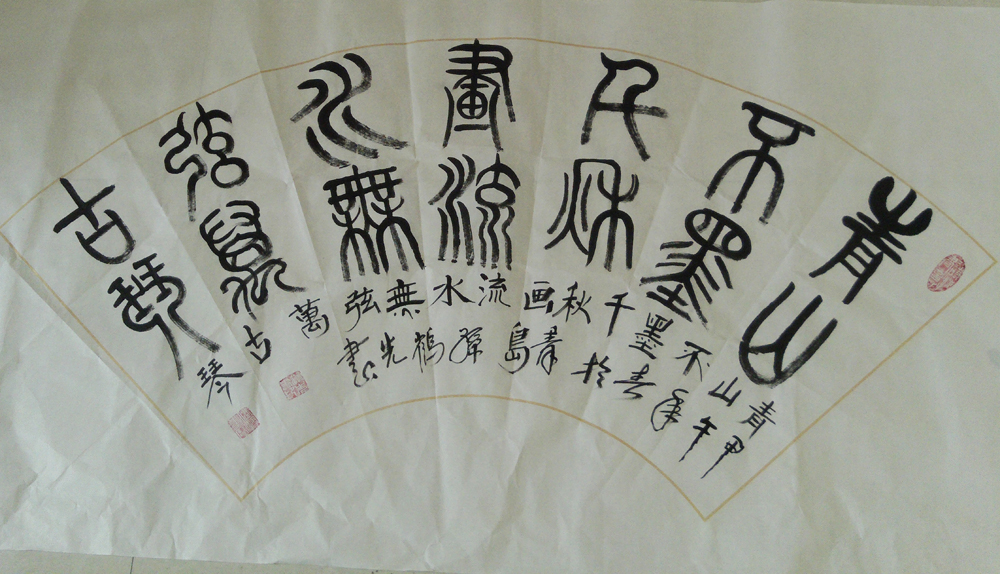 青山
不墨
千秋
畫流
水無
弦萬
古琴
青山不墨千秋画流水無弦萬古琴
甲午年春於青島
光書